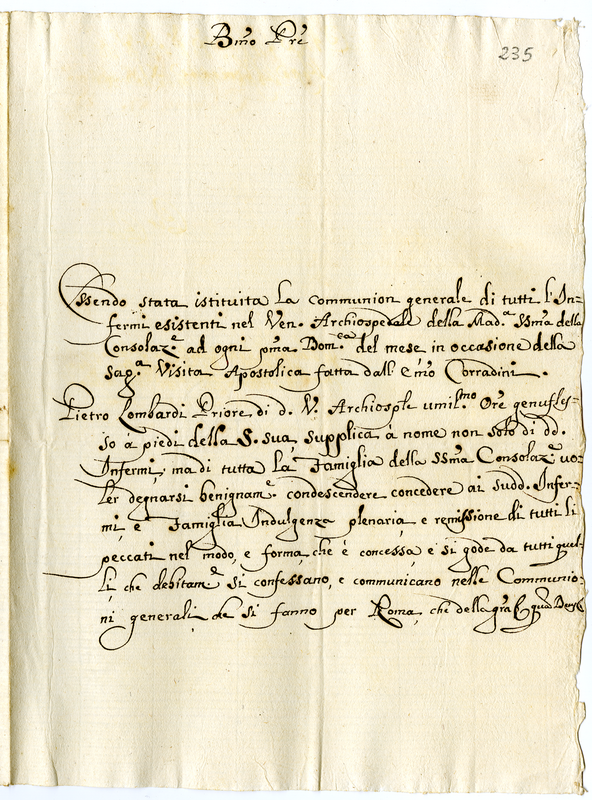 Bmo Pre
235
Essendo stata istituita la communion generale di tutti l'In=
fermi esistenti nel Ven. Archiospedale della Mad.a SSma della
Consolaz.e ad ogni pma Dom.ca del mese in occasione della
Sag.a Visita Apostolica fatta dall' Emo Corradini.
Pietro Lombardi Priore di d. V. Archiosple umil.mo Ore genufles=
so a piedi della S. sua, supplica à nome non solo di dd.
Infermi, ma di tutta la Famiglia della SSma Consolaz.e vo=
ler degnarsi benignam.e condescendere concedere ai sudd. Infer=
mi, e Famiglia Indulgenza plenaria, e remissione di tutti li
peccati nel modo, e forma, che è concessa, e si gode da tutti quel=
li, che debitam.e si confessano, e communicano nelle Communio=
ni generali, che si fanno per Roma, che della gra &c. quam Deus &c.